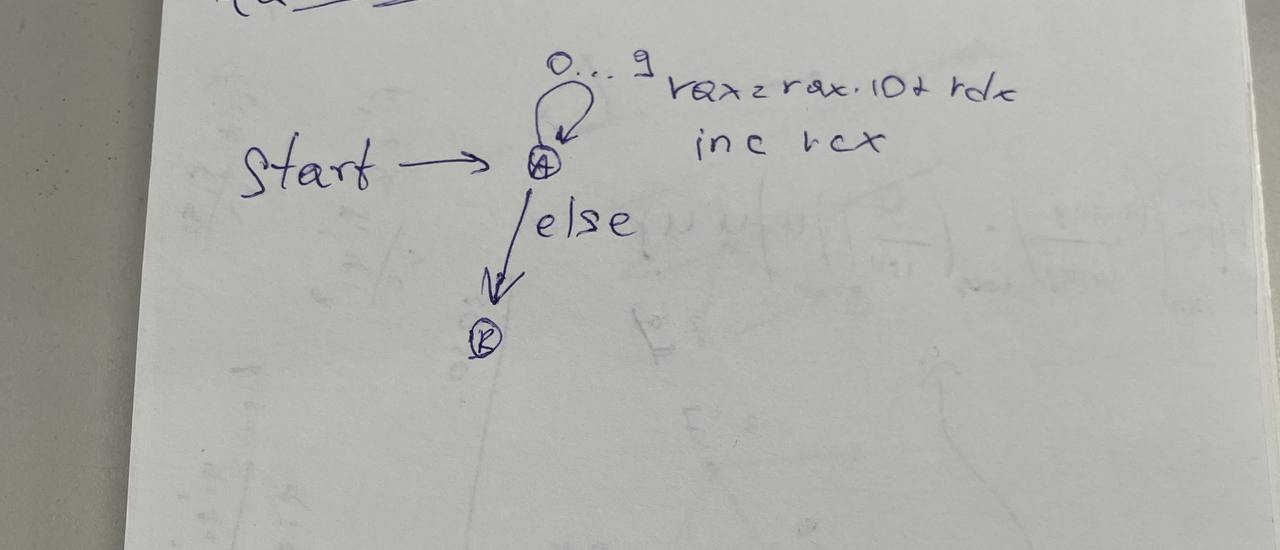 0... 9
rax = rax · 10 + rdx
inc rcx
Start → A
else
B